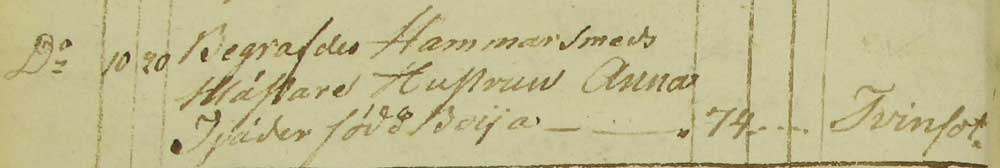 Do 10 20 Begrafdes Hammarsmeds
Mästare Hustrun Anna
Tjäder född Boija — — . 74 . . . . Tvinsot.